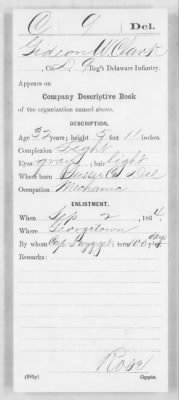 C 9 Del.
Gideon W Clark
, Co. D, 9 Reg't Delaware Infantry.
Appears on
Company Descriptive Book
of the organization named above.
DESCRIPTION.
Age 32 years; height 5 feet 11 inches.
Complexion Light
Eyes gray; hair light
Where born Sussex Co Del
Occupation Mechanic
ENLISTMENT.
When Sep 2, 1864.
Where Georgetown
By whom Cap ; term 100 dys
Remarks:
Rose
Copyist.